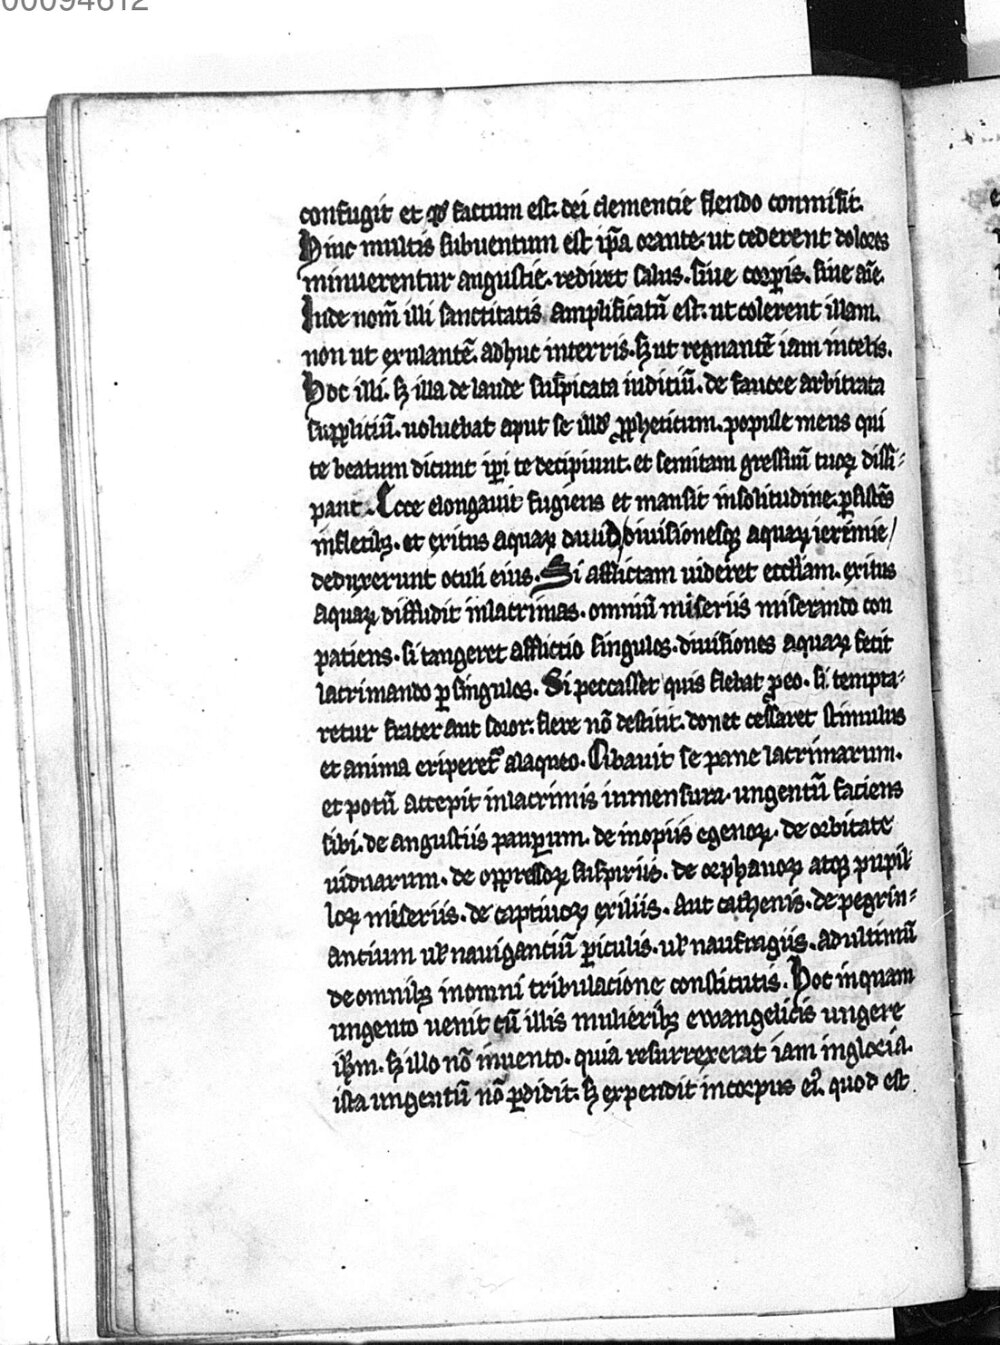 00094612
confugit et qd' factum est. dei clemencie flendo conmisit.
Hinc multis subuentum est ip̄a orante. ut cederent dolores
minuerentur angustie. rediret salus. siue corꝑis. siue aīe.
Inde nom̄ illi sanctitatis amplificatū est. ut colerent illam.
non ut exulantē adhuc interris. sꝫ ut regnantē iam incelis.
Hoc illi. sꝫ illa de laude suspicata iuditiū. de fauore arbitrata
suppliciū. uoluebat aput se illud ꝓpheticum. popule meus qui
te beatum dicunt ip̄i te decipiunt. et semitam gressuū tuoꝝ dissi-
pant. Ecce elongauit fugiens et mansit insolitudine. ꝑsistēs
infletibꝫ. et exitus aquaꝝ dauid diuisionesqꝫ aquaꝝ ieremie
deduxerunt oculi eius. Si afflictam uideret eccl̄iam. exitus
aquaꝝ diffudit inlacrimas. omniū miseriis miserando con
patiens. si tangeret afflictio singulos. diuisiones aquaꝝ fecit
lacrimando ꝑ singulos. Si peccasset quis flebat ꝓ eo. si tempta-
retur frater aut soror. flere nō destitit. donec cessaret stimulus
et anima eriperet᷑ alaqueo. Cibauit se pane lacrimarum.
et potū accepit inlacrimis inmensura. ungentū faciens
sibi. de angustiis pauꝑum. de inopiis egenoꝝ. de orbitate
uiduarum. de oppressoꝝ suspiriis. de orphanoꝝ atqꝫ pupil-
loꝝ miseriis. de captiuoꝝ exiliis. aut cathenis. de pegrin-
antium uł nauiganciū ꝑiculis. uł naufragiis. adultimū
de omnibꝫ inomni tribulacione constitutis. Hoc inquam
ungento uenit cū illis mulieribꝫ ewangelicis ungere
ih̄m. sꝫ illo nō inuento. quia resurrexerat iam ingloria.
ista ungentū nō ꝑdidit. sꝫ expendit incorpus ei᷒. quod est